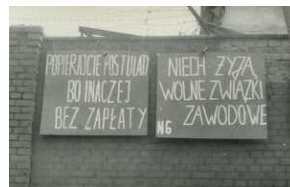 POPIERAJCIE POSTULATY
BO INACZEJ
BEZ ZAPŁATY
NIECH ŻYJĄ
WOLNE ZWIĄZKI
ZAWODOWE
NG